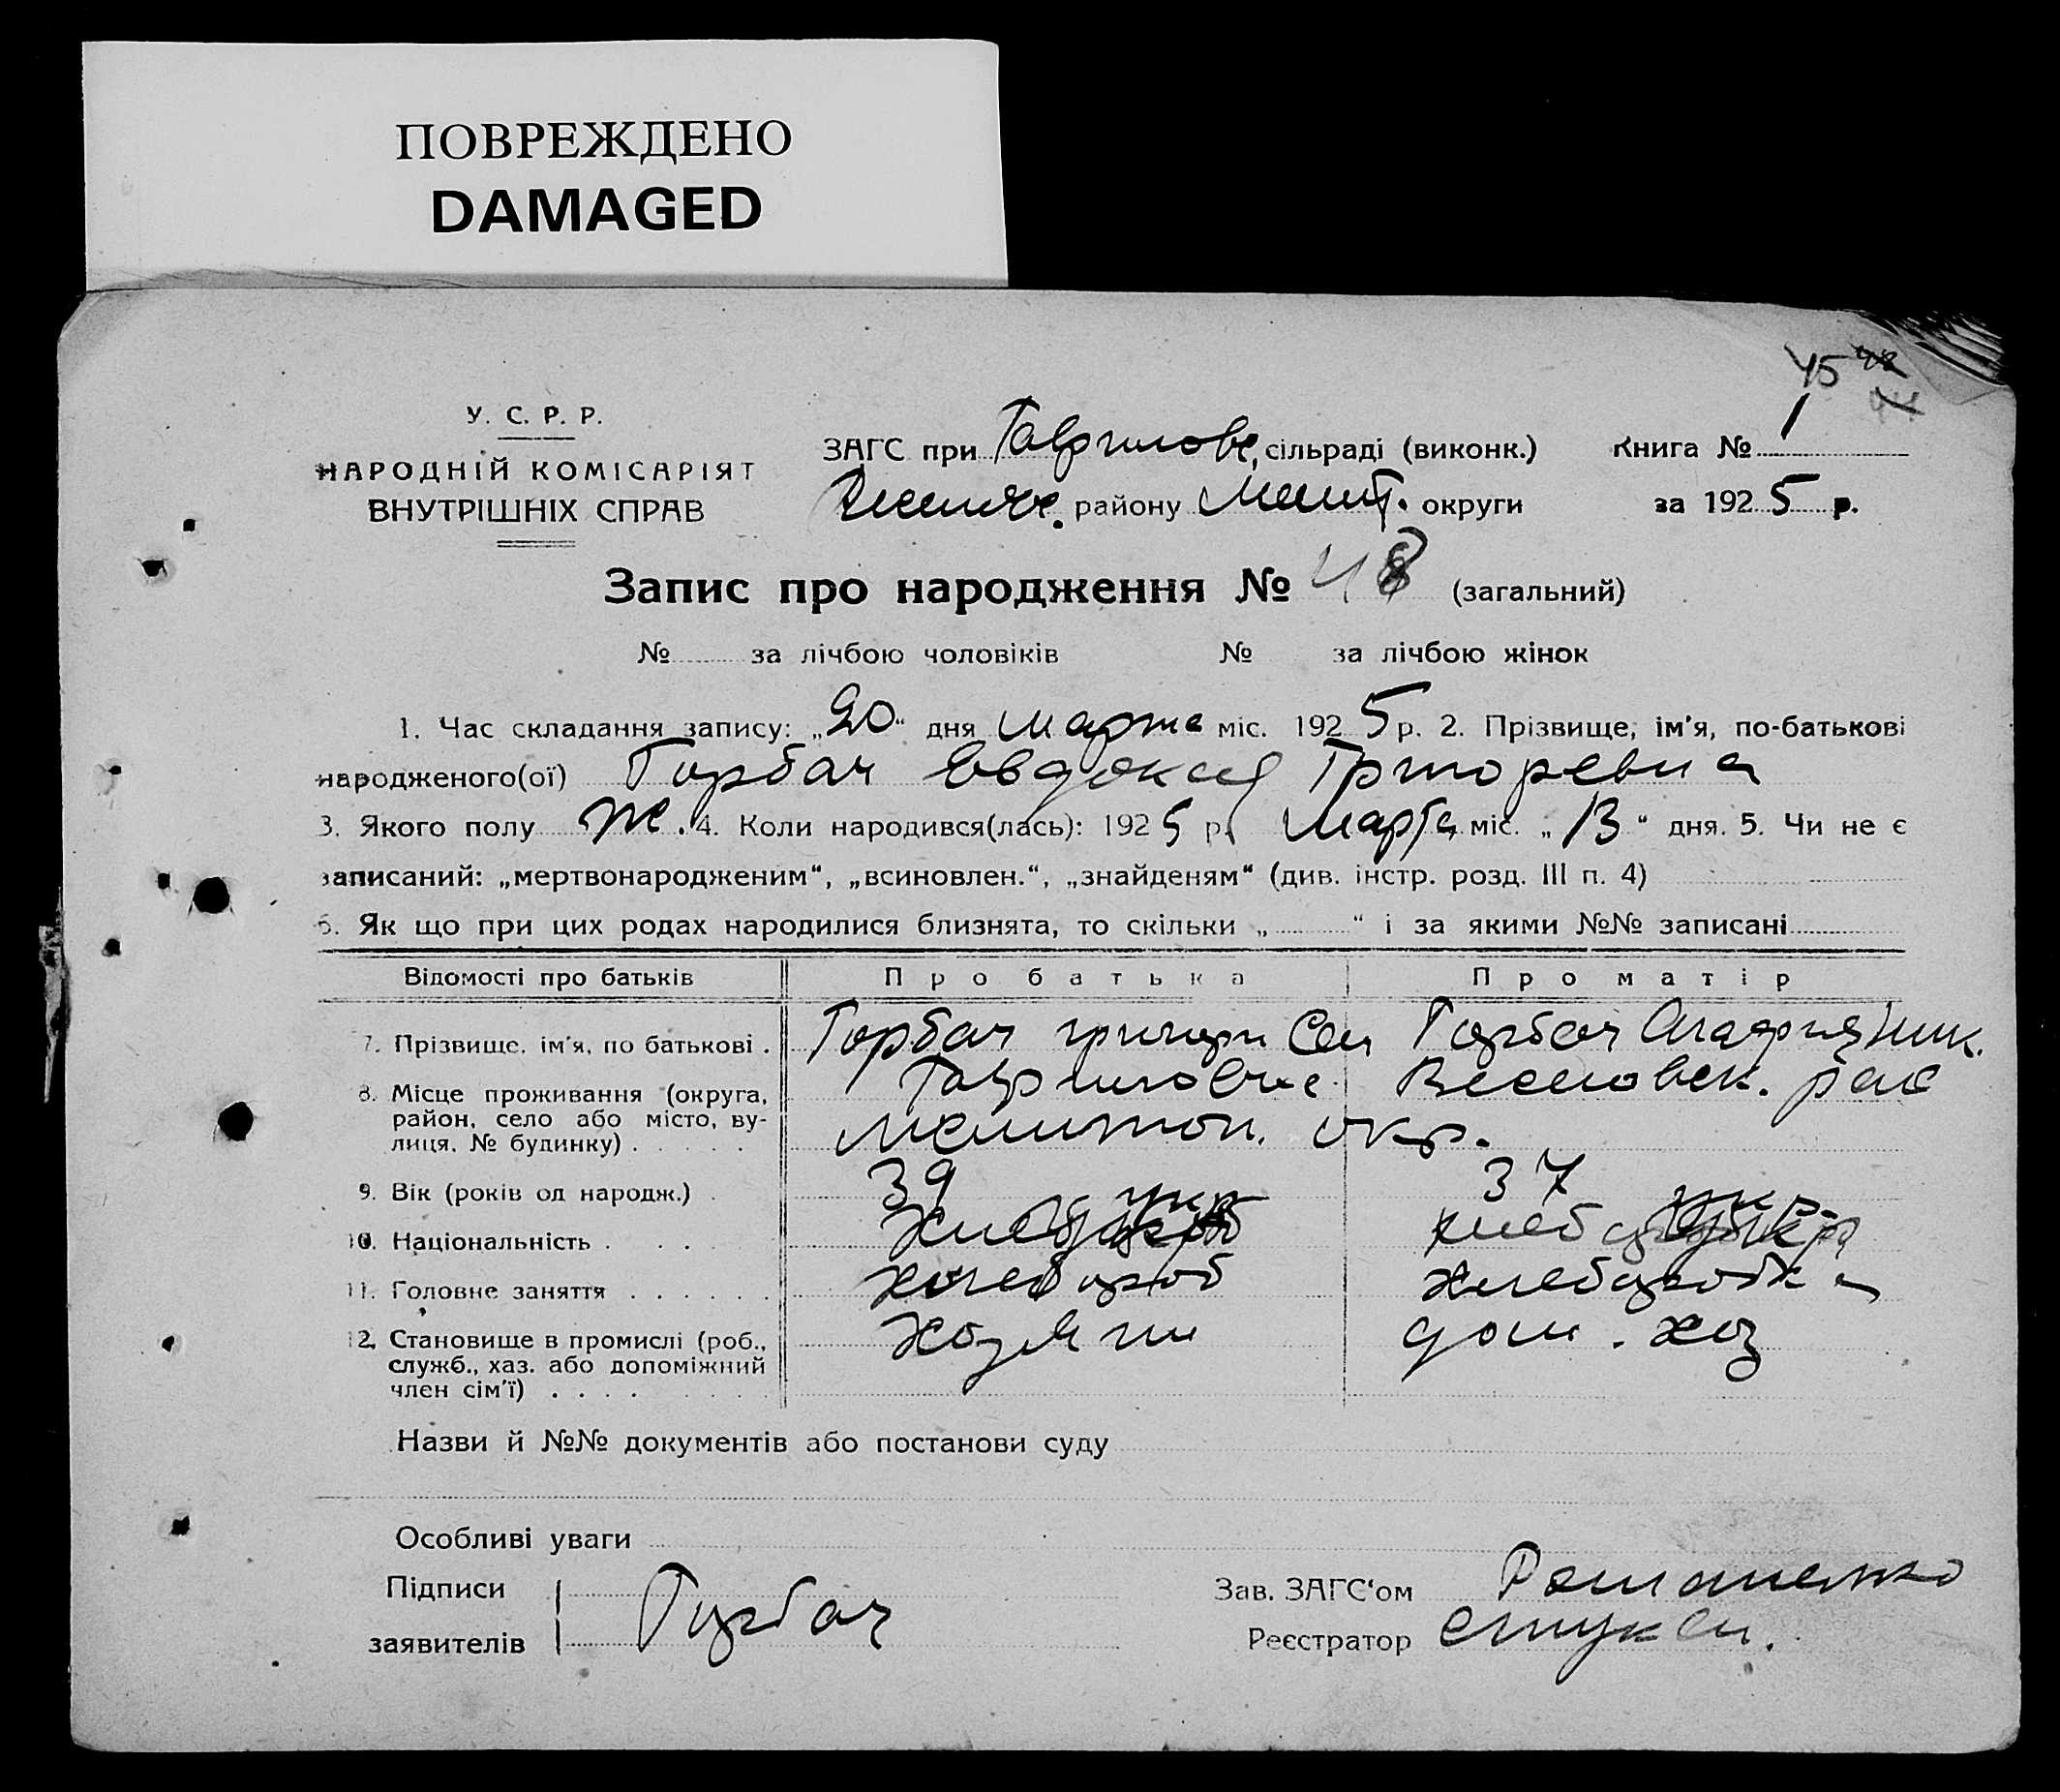 ПОВРЕЖДЕНО
DAMAGED
45
У. С. Р. Р.
НАРОДНІЙ КОМІСАРІЯТ
ВНУТРІШНІХ СПРАВ
ЗАГС при Гаврилове, сільраді (виконк.)
району Мелит. округи
Книга № 1
за 1925 р.
Запис про народження № 48 (загальний)
№ за лічбою чоловіків № за лічбою жінок
1. Час складання запису: „20“ дня марта міс. 1925 р. 2. Прізвище, ім'я, по-батькові
народженого(ої) Горбач Евдокия Григоревна
3. Якого полу ж. 4. Коли народився(лась): 1925 р. Марта міс. „13“ дня. 5. Чи не є
записаний: „мертвонародженим“, „всиновлен.“, „знайденям“ (див. інстр. розд. III п. 4)
6. Як що при цих родах народилися близнята, то скільки „ “ і за якими №№ записані
Відомості про батьків Про батька Про матір
7. Прізвище, ім'я, по батькові . Горбач григори Сем Горбач Агафия Ник.
8. Місце проживання (округа, Гавриловке Веселовск. рае
район, село або місто, ву-
лиця, № будинку) . . . . . Мелитоп. окр.
9. Вік (років од народж.) . 39 37
10. Національність . . . укр укр.
11. Головне заняття . . . . . . хлебороб хлебороб
12. Становище в промислі (роб., Хозяин дом. хоз
служб., хаз. або допоміжний
член сім'ї) . . . . . . . .
Назви й №№ документів або постанови суду
Особливі уваги
Підписи
заявителів Горбач
Зав. ЗАГС'ом Романенко
Реєстратор